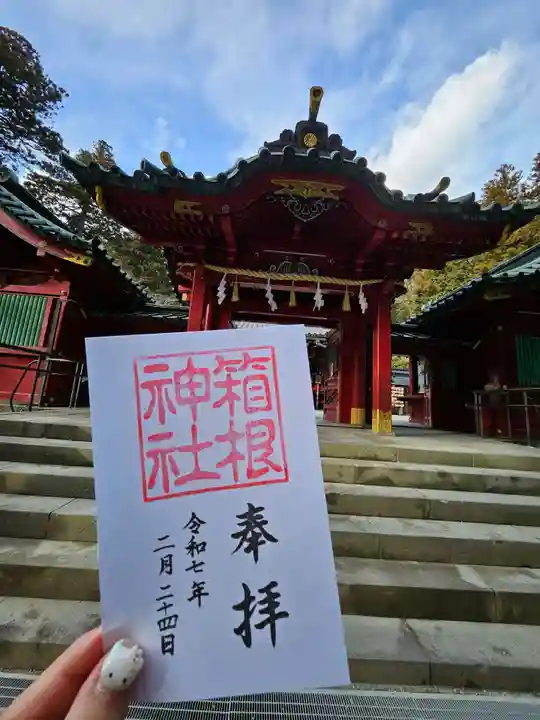 箱根
神社
奉拝
令和七年
二月二十四日